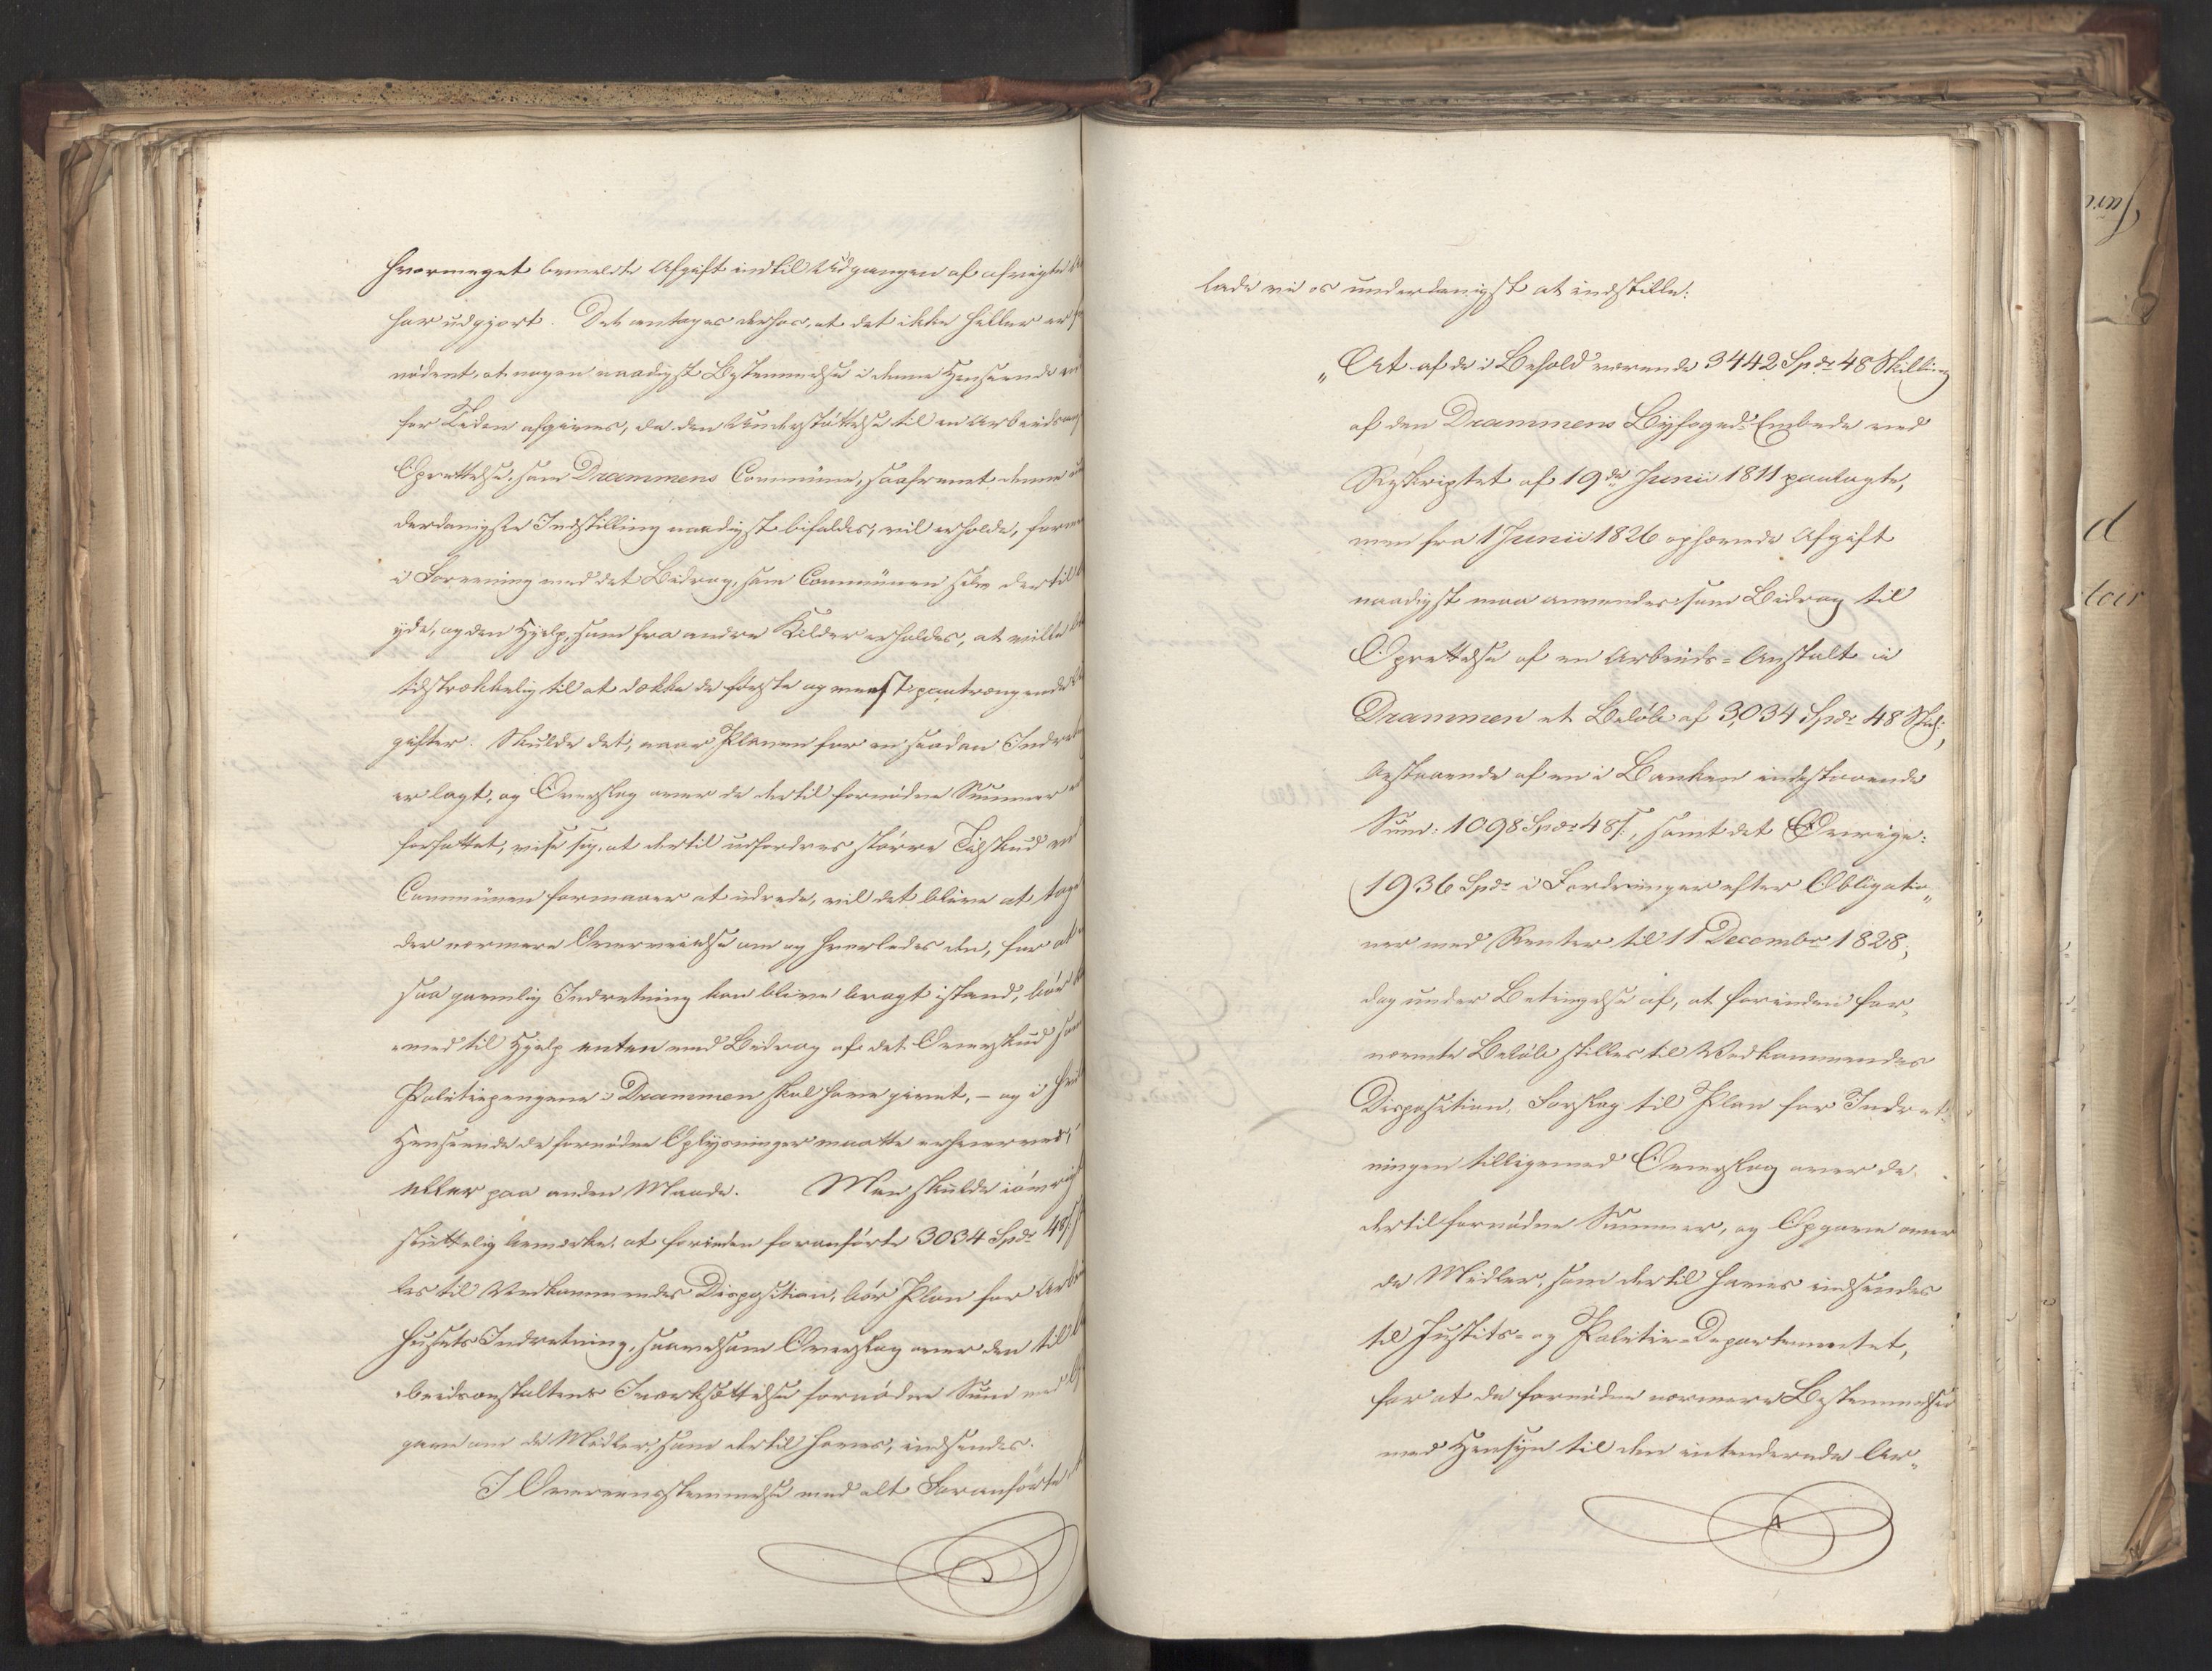 hvormeget bemeldte Afgift indtil Udgangen af afvigte
har udgjort. Det antages derhos, at det ikke heller er
nødent, at nogen naadigst Bestemmelse i denne Henseende
for Tiden afgives, da den Understøttelse til en Arbeids
Oprettelse, som Drammens Commune, saafremt denne
derdanigste Indstilling naadigst bifaldes, vil erholde,
i Forening med det Bidrag, som Communen selv dertil
yde, og den Hjelp, som fra andre Kilder erholdes, at ville
tilstrækkelig til at dække de første og meest paatrængende
gifter. Skulde det, naar Planen for en saadan
er lagt, og Overslag over de dertil fornødne Summer
forfattet, vise sig, at dertil udfordres større Tilskud
Communen formaaer at udrede, vil det blive at
der nærmere Overveielse om og hvorledes den, for at
saa gavnlig Indretning kan blive bragt istand, bør
med til Hjelp enten med Bidrag af det Overskud
Politiepengene i Drammen skal have givet, - og i
Henseende de fornødne Oplysninger maatte erhverves,
eller paa anden Maade. Man skulde
skuttelig bemærke, at forinden foranførte 3034 Spdr 48
les til Vedkommendes Disposition, bør Plan for
husets Indretning, saavelsom Overslag over den til
beidsanstaltens Iværksættelse fornødne Sum med
gave om de Midler, som dertil haves, indsendes.
I Overeensstemmelse med alt Foranførte
lade vi os underdanigst at indstille:
„At af de i Behold værende 3442 Spdr 48 Skilling
af den Drammens Byfoged-Embede ved
Reskriptet af 19de Junii 1811 paalagte,
men fra 1 Junii 1826 ophævede Afgift
naadigst maa anvendes som Bidrag til
Oprettelse af en Arbeids-Anstalt i
Drammen et Beløb af 3,034 Spdr 48 Skil:,
bestaaende af en i Banken indestaaende
Sum: 1098 Spdr 48 s., samt det Øvrige:
1936 Spdr i Fordringer efter Obligatio„
ner med Renter til 11 Decembr 1828;
dog under Betingelse af, at forinden for„
nævnte Beløb stilles til Vedkommendes
Disposition, Forslag til Plan for Indret„
ningen tilligemed Overslag over de
dertil fornødne Summer, og Opgave over
de Midler, som dertil haves indsendes
til Justits- og Politie-Departementet,
for at de fornødne nærmere Bestemmelser
med Hensyn til den intenderede Ar„